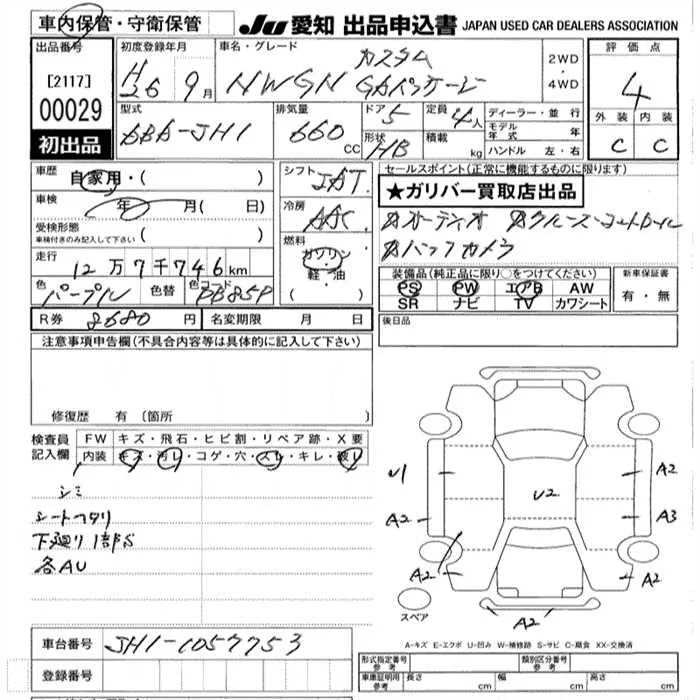 車内保管・守衛保管
JU 愛知 出品申込書 JAPAN USED CAR DEALERS ASSOCIATION
出品番号 初度登録年月 車名・グレード カスタム 2WD・4WD 評価点
[2117] H26 9月 NWGN GAパッケージ 4
00029 型式 排気量 ドア 定員 ディーラー・並行 外装 内装
初出品 DBA-JH1 660cc 5 4人 モデル年式 年 C C
形状 HB 積載 kg ハンドル 左・右
車歴 自家用・( ) シフト IAT セールスポイント(正常に機能するものに限ります)
車検 年 月(日) 冷房 AAC ★ガリバー買取店出品
受検形態 車検付きのみ記入して下さい ( ) 燃料 ガソリン・軽・油 ( )
☆オーディオ ☆クルーズコントロール
☆バックカメラ
走行 12万7千746km
色 パープル 色替 色コード PB85P
装備品(純正品に限り○をつけてください) 新車保証書
PS PW エアB AW 有・無
SR ナビ TV カワシート
R券 8680円 名変期限 月 日 後日品
注意事項申告欄(不具合内容等は具体的に記入して下さい)
修復歴 有〔箇所 〕
検査員記入欄 FW キズ・飛石・ヒビ割・リペア跡・X要
内装 キズ・汚レ・コゲ・穴・スレ・キレ・破レ
シミ
シートヘタリ
下廻り1部S
各AU
U1 A2 U2 A2 A3
A2 A2 A2
スペア
A-キズ E-エクボ U-凹み W-補修跡 S-サビ C-腐食 XX-交換済
車台番号 JH1-1057753
登録番号
形式指定番号参考 類別区分番号参考
車庫証明用参考 長さ cm 幅 cm 高さ cm